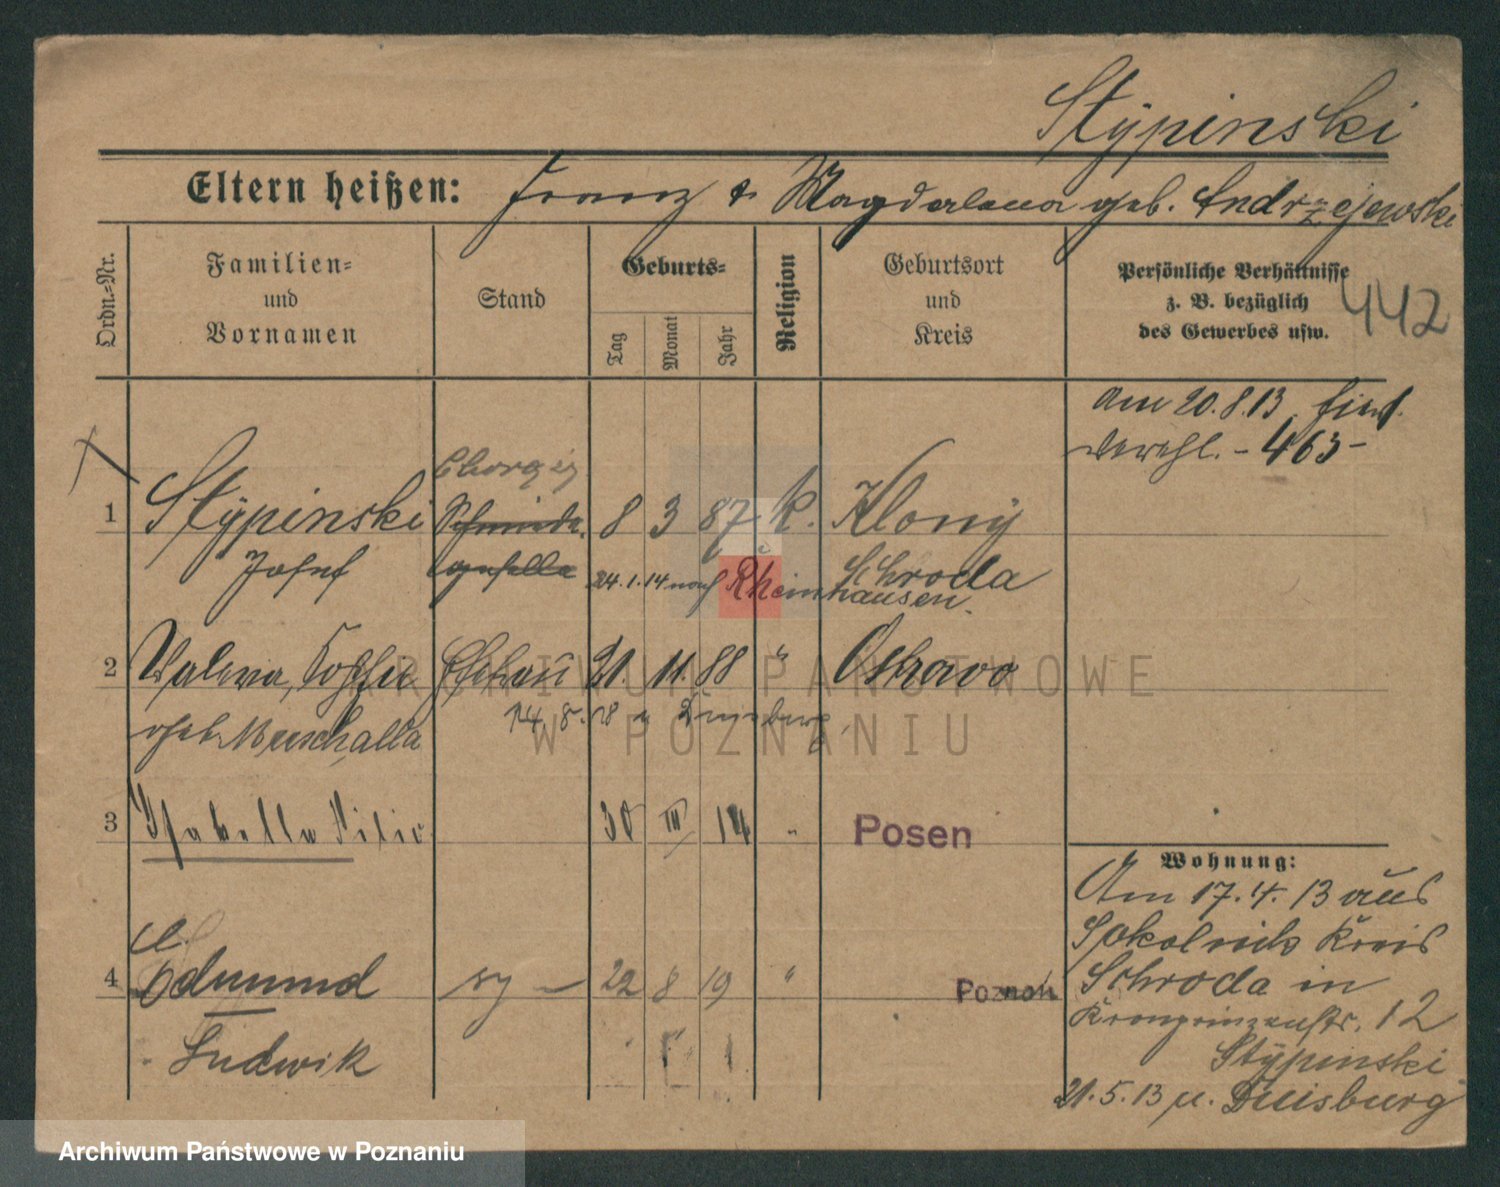 Stypinski
Eltern heißen: Franz & Magdalena geb. Andrzejewski
Ordn.-Nr.
Familien=
und
Vornamen
Stand
Geburts=
Tag
Monat
Jahr
Religion
Geburtsort
und
Kreis
Persönliche Verhältnisse
z. B. bezüglich
des Gewerbes usw.
442
am 20.8.13
- 463 -
1 Stypinski Schmiede- 8 3 87 k. Klony
Josef geselle Schroda
24.1.14 nach Rheinhausen.
2 Valeria, Sophie Ehefrau 21. 11. 88 " Ostrowo
geb. Muschalla
14.8.18 n Duisburg
3 Isabella 30 III 14 " Posen
4 Edmund 22 8 19 " Poznań
Ludwik
Wohnung:
Am 17.4.13 aus
Sokolnik Kreis
Schroda in
Kronprinzenstr. 12
Stypinski
21.5.13 n. Duisburg
ARCHIWUM PAŃSTWOWE
W POZNANIU
Archiwum Państwowe w Poznaniu